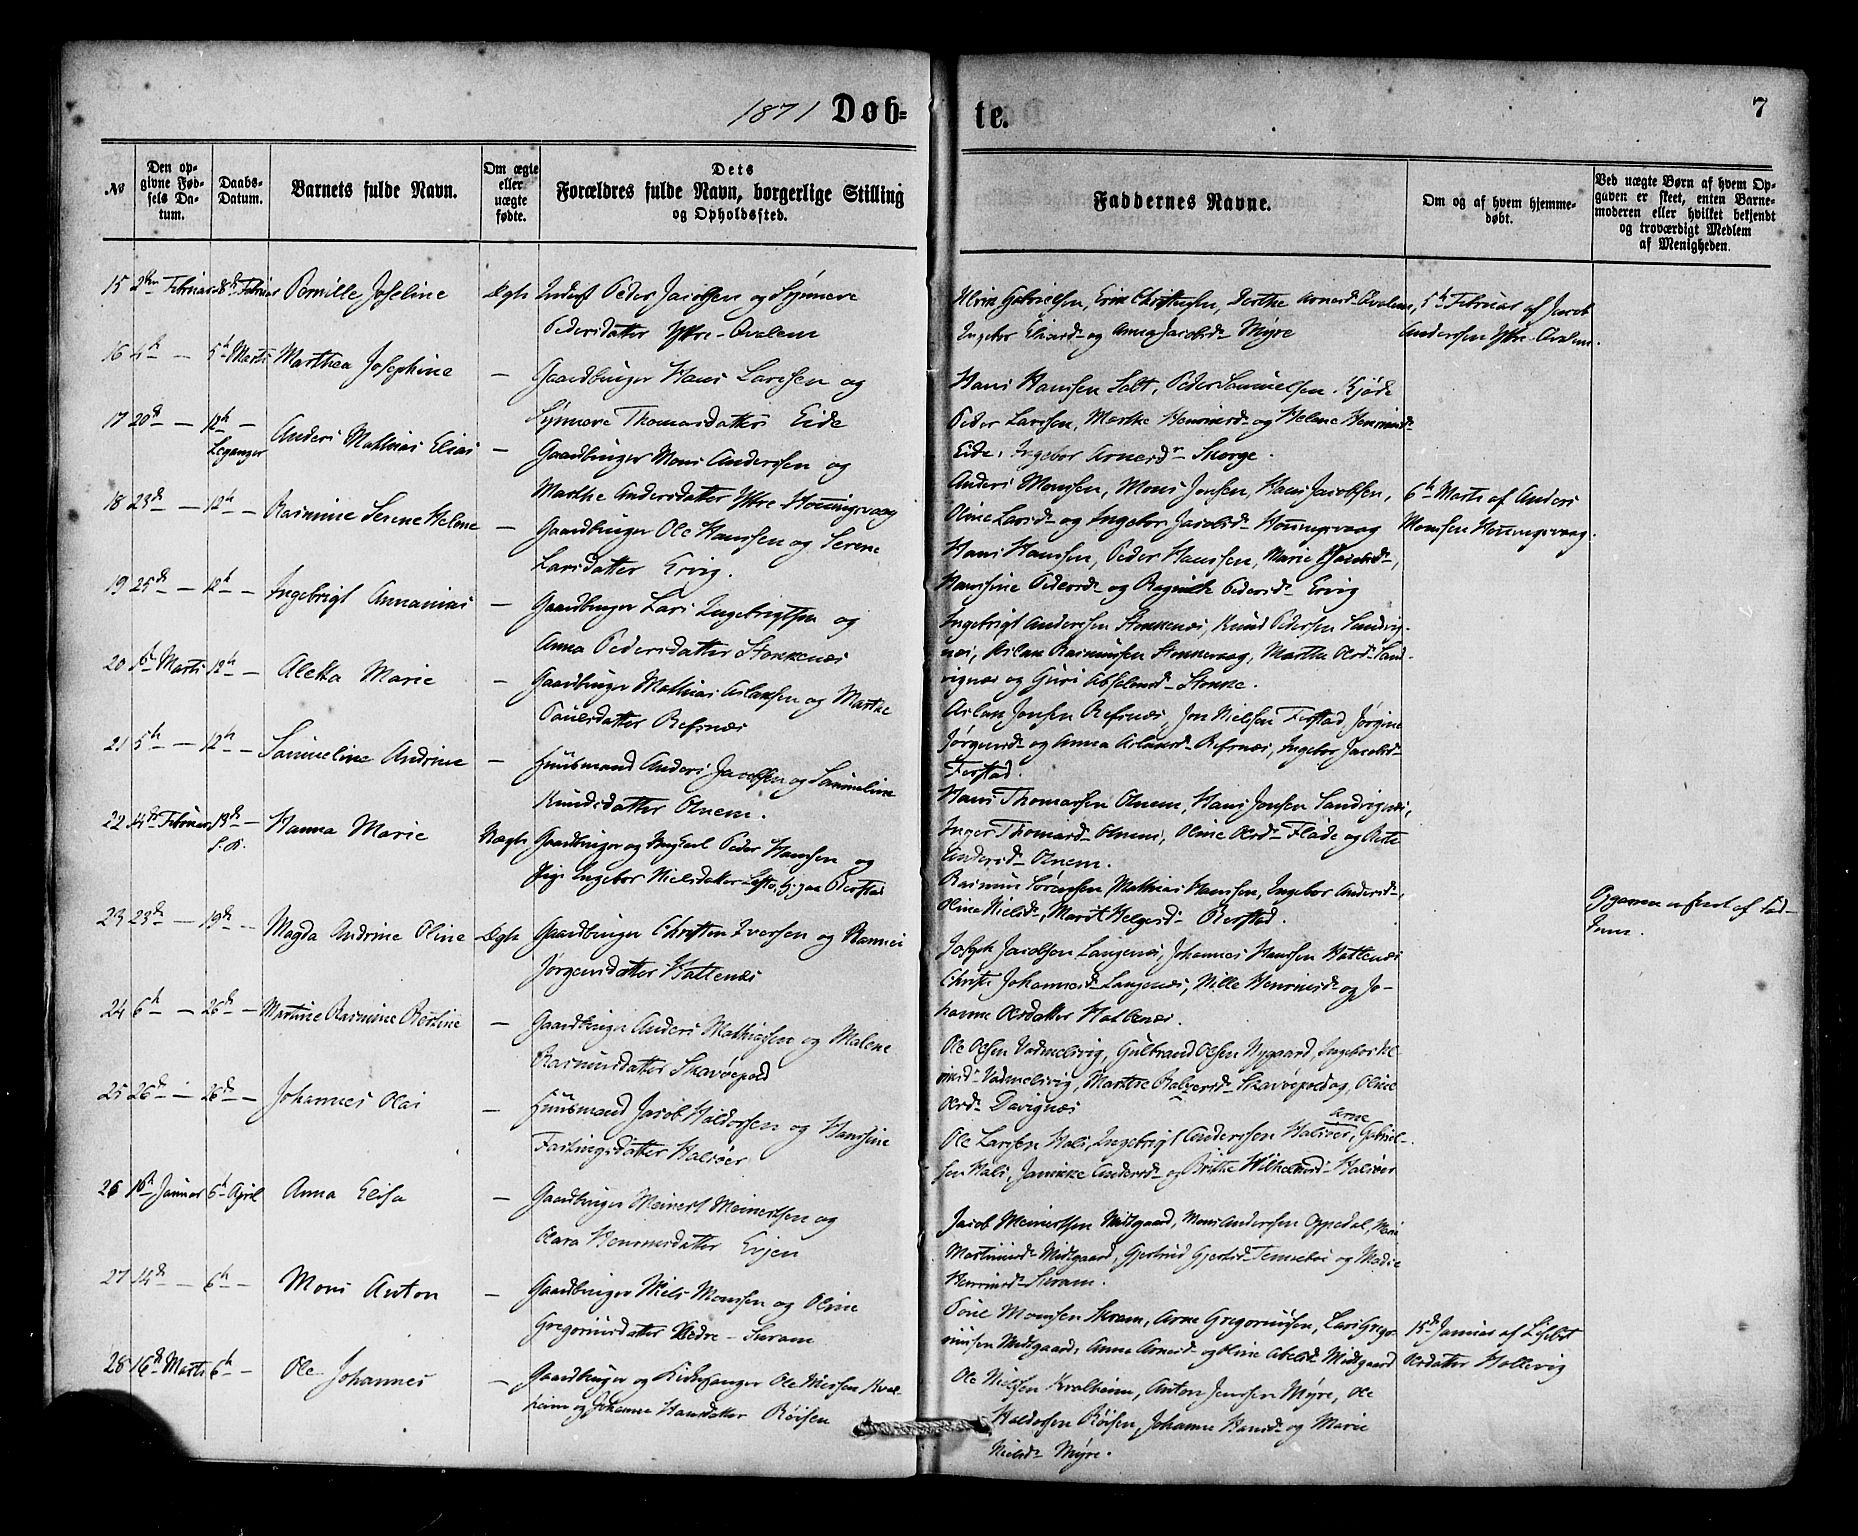 1871 Døb=
te.
7
№
Den op-
givne Fød-
sels Da-
tum.
Daabs-
Datum.
Barnets fulde Navn.
Om ægte
eller
uægte
fødte.
Dets
Forældres fulde Navn, borgerlige Stilling
og Opholdssted.
Faddernes Navne.
Om og af hvem hjemme-
døbt.
Ved uægte Børn af hvem Op-
gaven er skeet, enten Barne-
moderen eller hvilket bekjendt
og troværdigt Medlem
af Menigheden.
15 2den Februar Februar Pernille Joseline Ægte Inderst Peder Jacobsen og Synneve
Pedersdatter Yttre-Qvalem
Gabrielsen, Erik Christensen, Dorthe Arnesd- Qvalem,
Ingebor Eliasd- og Anna Jacobsd- Myre
5th Februar af Jacob
Anderssen Yttre-Qvalem.
16 4th — 5th Marts Marthea Josephine — Gaardbruger Hans Larssen og
Synneve Thomasdatter Eide
Hans Hanssen Salt, Peder Samuelsen Kjøde
Peder Larssen, Marthe Henriksd- og Helene Henriksd-
Eide, Ingebor Arnesd- Skorge.
17 20de — 12th —
Leganger
Anders Mathias Elias — Gaardbruger Mons Anderssen og
Marthe Andersdatter Yttre-Houningsvaag
Anders Monssen, Mons Jonsen, Hans Jacobsen,
Oline Larsd- og Ingebor Jacobsd- Houningsvaag
6th Marts af Anders
Monssen Houningsvaag.
18 23de — 12th — Rasmine Serene Helene — Gaardbruger Ole Hanssen og Serene
Larsdatter Ervig.
Hans Hanssen, Peder Hanssen, Marie
Hanssine Pedersd- og Pedersd- Ervig
19 25de — 12th — Ingebrigt Annanias — Gaardbruger Lars Ingebrigtsen og
Anna Pedersdatter Stokkenæs
Ingebrigt Anderssen Stokkenæs, Knud Pedersen Sandvig-
næs, Aslak Rasmussen Stokkevaag, Marthe Olsd- Sand-
vignæs og Guri Absalonsd- Stokke.
20 1st Marts 12th — Aletta Marie — Gaardbruger Mathias Aslaksen og Marthe
Poulsdatter Refsnæs
Aslak Jonsen Refsnæs, Jon Nielsen Ferstad, Jørgine
Jørgensd- og Anna Aslaksd- Refsnæs, Ingebor Jacobsd-
Ferstad.
21 5th — 12th — Samueline Andrine — Huusmand Anders Jacobsen og Samueline
Knudsdatter Osnem.
Hans Thomassen Osnem, Hans Jonsen Sandvignæs,
Inger Thomasd- Osnem, Oline Olsd- Flade og
Andersd- Osnem.
22 14th Februar 19de — Hanna Marie Uægte Gaardbruger og Ungkarl Peder Hanssen og
Pige Ingebor Nielsdatter Berstad
Rasmus Sørensen, Mathias Hanssen, Ingebor Andersd-,
Oline Nielsd-, Marit Helgesd- Berstad.
Opgaven af
23 23de — 19de — Magda Andrine Oline Ægte Gaardbruger Christen Iversen og Rannei
Jørgensdatter Hattenæs
Joseph Jacobsen Langenæs, Johannes Hanssen Hattenæs
Johannesd- Langenæs, Nille Henriksd- og Jo-
hanne Olsdatter Hattenæs.
24 6th — 26de — Martine Rasmine Bertine — Gaardbruger Anders Mathiassen og Malene
Rasmusdatter Skavøepold
Ole Olsen Vadmelsvig, Gulbrand Olsen Nygaard, Ingebor
Vadmelsvig, Marthe Skavøepold og, Oline
Olsd- Davignæs
25 26de — 26de — Johannes Olai — Huusmand Jacob Haldorsen og Hanssine
Halsøer
Ole Larssen Hals, Ingebrigt Anderssen Halsøer, Arne Gabriel-
sen Hals, Jannikke Andersd- og Brithe Wilhelmsd- Halsøer
26 16th Januar 6th April Anna Elisa — Gaardbruger Meinert Meinertsen og
Olara Hemmesdatter Evjen
Jacob Meinertsen Midtgaard, Mons Anderssen Oppedal,
Martinusd- Midtgaard, Gjertrud Gjertsd- Tennebøe og
Henriksd- Skram.
27 14de — 6th — Mons Anton — Gaardbruger Niels Monssen og Oline
Gregoriusdatter Nedre-Skram
Poul Monssen Skram, Arne Gregoriussen, Lars Grego-
riussen Midtgaard, Anna Arnesd- og Oline Abelsd- Midtgaard
15de Januar af Lisbet
Olsdatter Hollevig
28 16de Marts 6th — Ole Johannes — Gaardbruger og Kirkesanger Ole Nielsen Kval-
heim og Johanne Hansdatter Røisen
Ole Nielsen Kvalheim, Anton Jenssen Myre, Ole
Haldorsen Røisen, Johanne Hansd- og Marie
Nielsd- Myre.